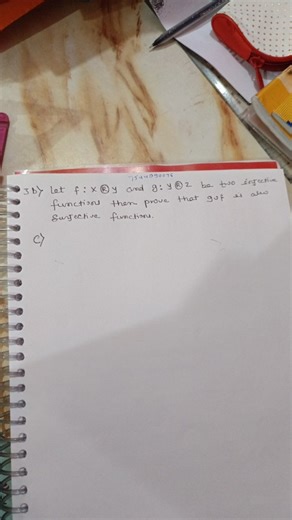 3b) let f : x Ⓡ y and g : y Ⓡ z be two
functions then prove that gof is also
Surjective functions.
c)